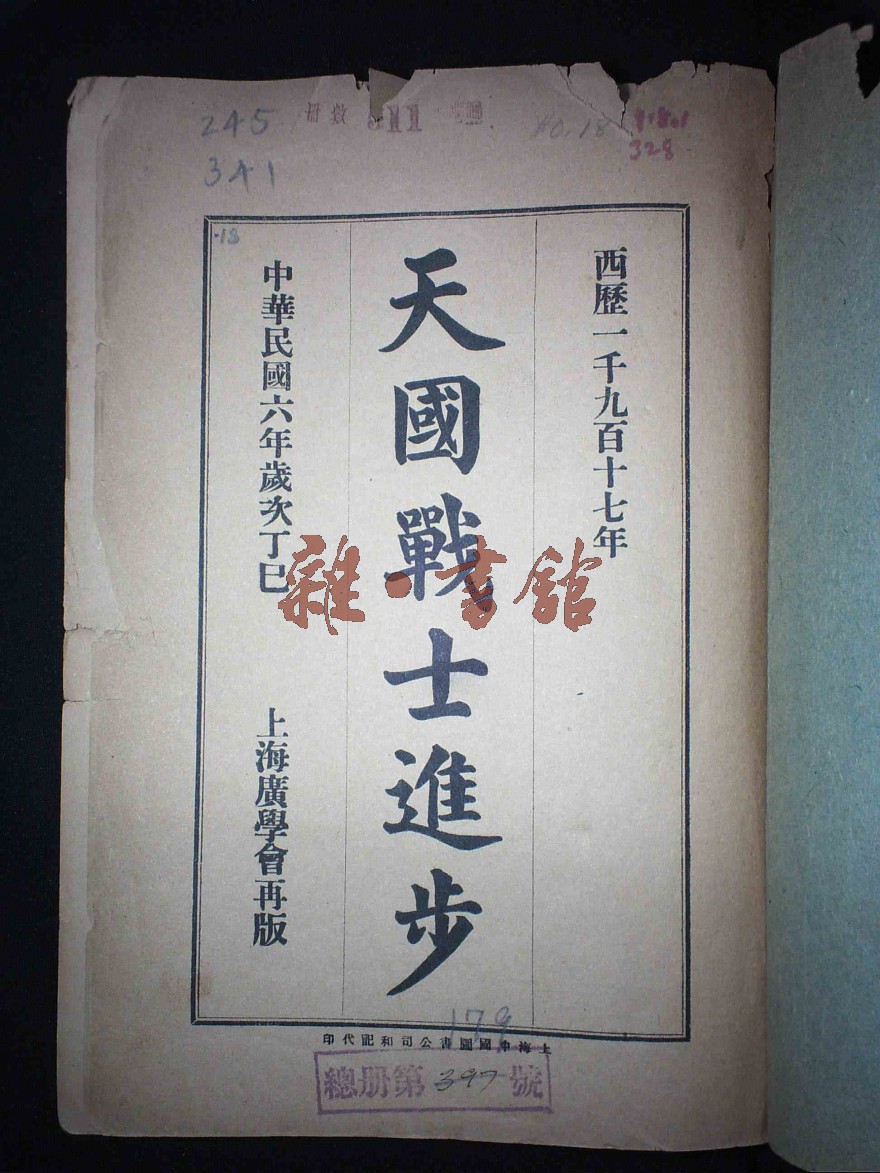 245
341
册數
11
No.18
328
-18
西歷一千九百十七年
天國戰士進步
中華民國六年歲次丁巳
上海廣學會再版
雜·書館
179
上海中國圖書公司和記代印
總册第397號